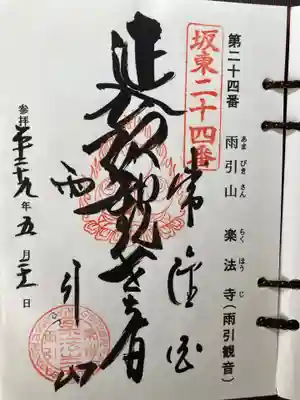 第二十四番 雨引山 楽法寺(雨引観音)
あま びき さん らく ほう じ
坂東二十四番
常陸国
延命観世音
雨引山
参拝 年 五 月 日